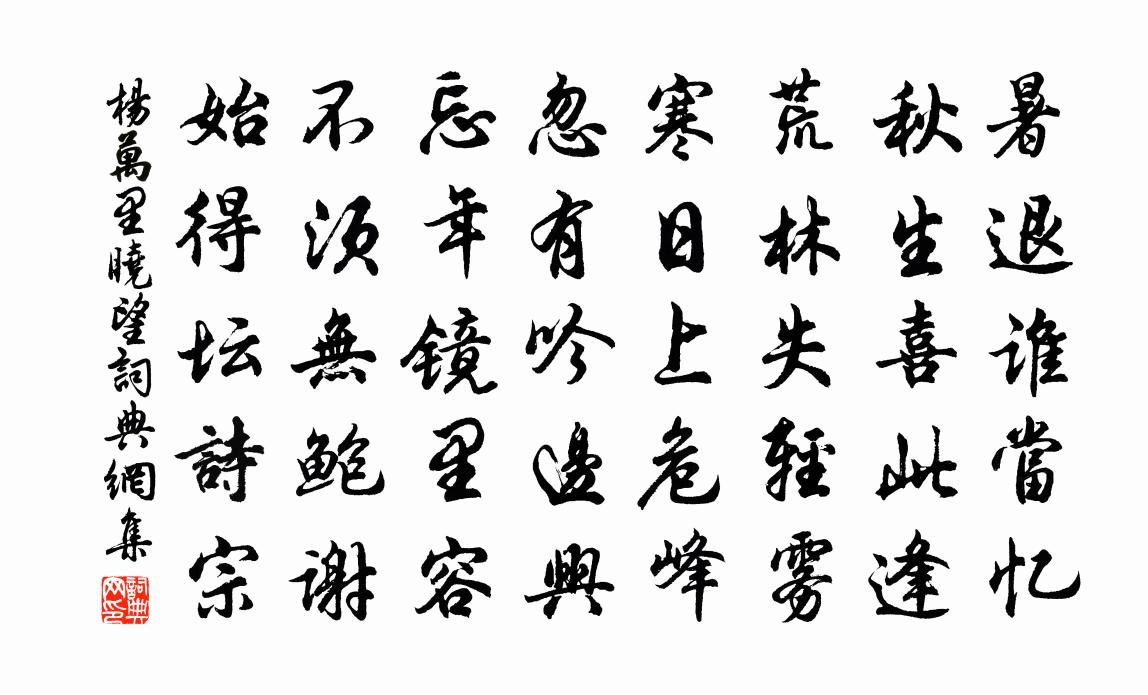 暑退谁當忆
秋生喜此逢
荒林失輕雾
寒日上危峰
忽有吟邊興
忘年镜里容
不须無鲍谢
始得坛詩宗
楊萬里曉望詞典網集
詞典网印